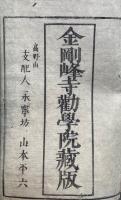 金剛峰寺勸學院藏版
高野山
支配人 永寧坊 山本平六